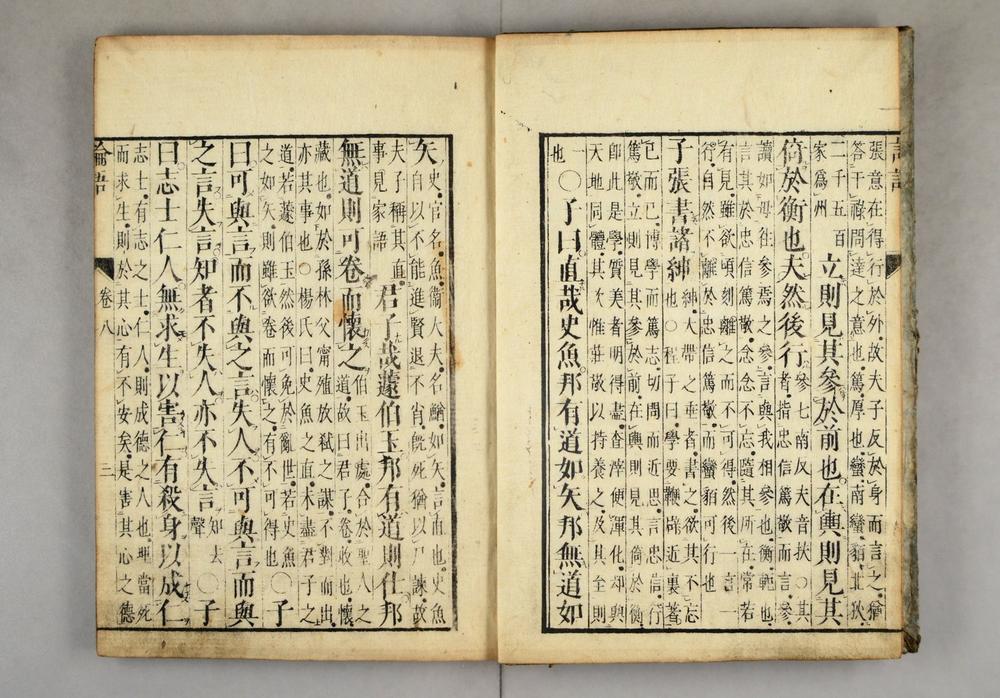 張意在得行於外故夫子反於身而言之猶
答干祿問達之意也篤厚也蠻南蠻貊北狄
二千五百家爲州 立則見其參於前也在輿則見其
倚於衡也夫然後行參七南反夫音扶○其者指忠信篤敬而言參
讀如毋往參焉之參言與我相參也衡軛也
言其於忠信篤敬念念不忘隨其所在常若
有見雖欲頃刻離之而不可得然後一言一
行自然不離於忠信篤敬而蠻貊可行也
子張書諸紳紳大帶之垂者書之欲其不忘也○程子曰學要鞭辟近裏著
己而已博學而篤志切問而近思言忠信行
篤敬立則見其參於前在輿則見其倚於衡
卽此是學質美者明得盡查滓便渾化却與
天地同體其次惟莊敬以持養之及其至則
一也○子曰直哉史魚邦有道如矢邦無道如
矢史官名魚衞大夫名鰌如矢言直也史魚
自以不能進賢退不肖旣死猶以尸諫故
夫子稱其直事見家語 君子哉蘧伯玉邦有道則仕邦
無道則可卷而懷之伯玉出處合於聖人之道故曰君子卷收也懷
藏也如於孫林父甯殖放弒之謀不對而出
亦其事也○楊氏曰史魚之直未盡君子之
道若蘧伯玉然後可免於亂世若史魚
之如矢則雖欲卷而懷之有不可得也○子
曰可與言而不與之言失人不可與言而與
之言失言知者不失人亦不失言知去聲○子
曰志士仁人無求生以害仁有殺身以成仁
志士有志之士仁人則成德之人也理當死
而求生則於其心有不安矣是害其心之德
論語 卷八 三